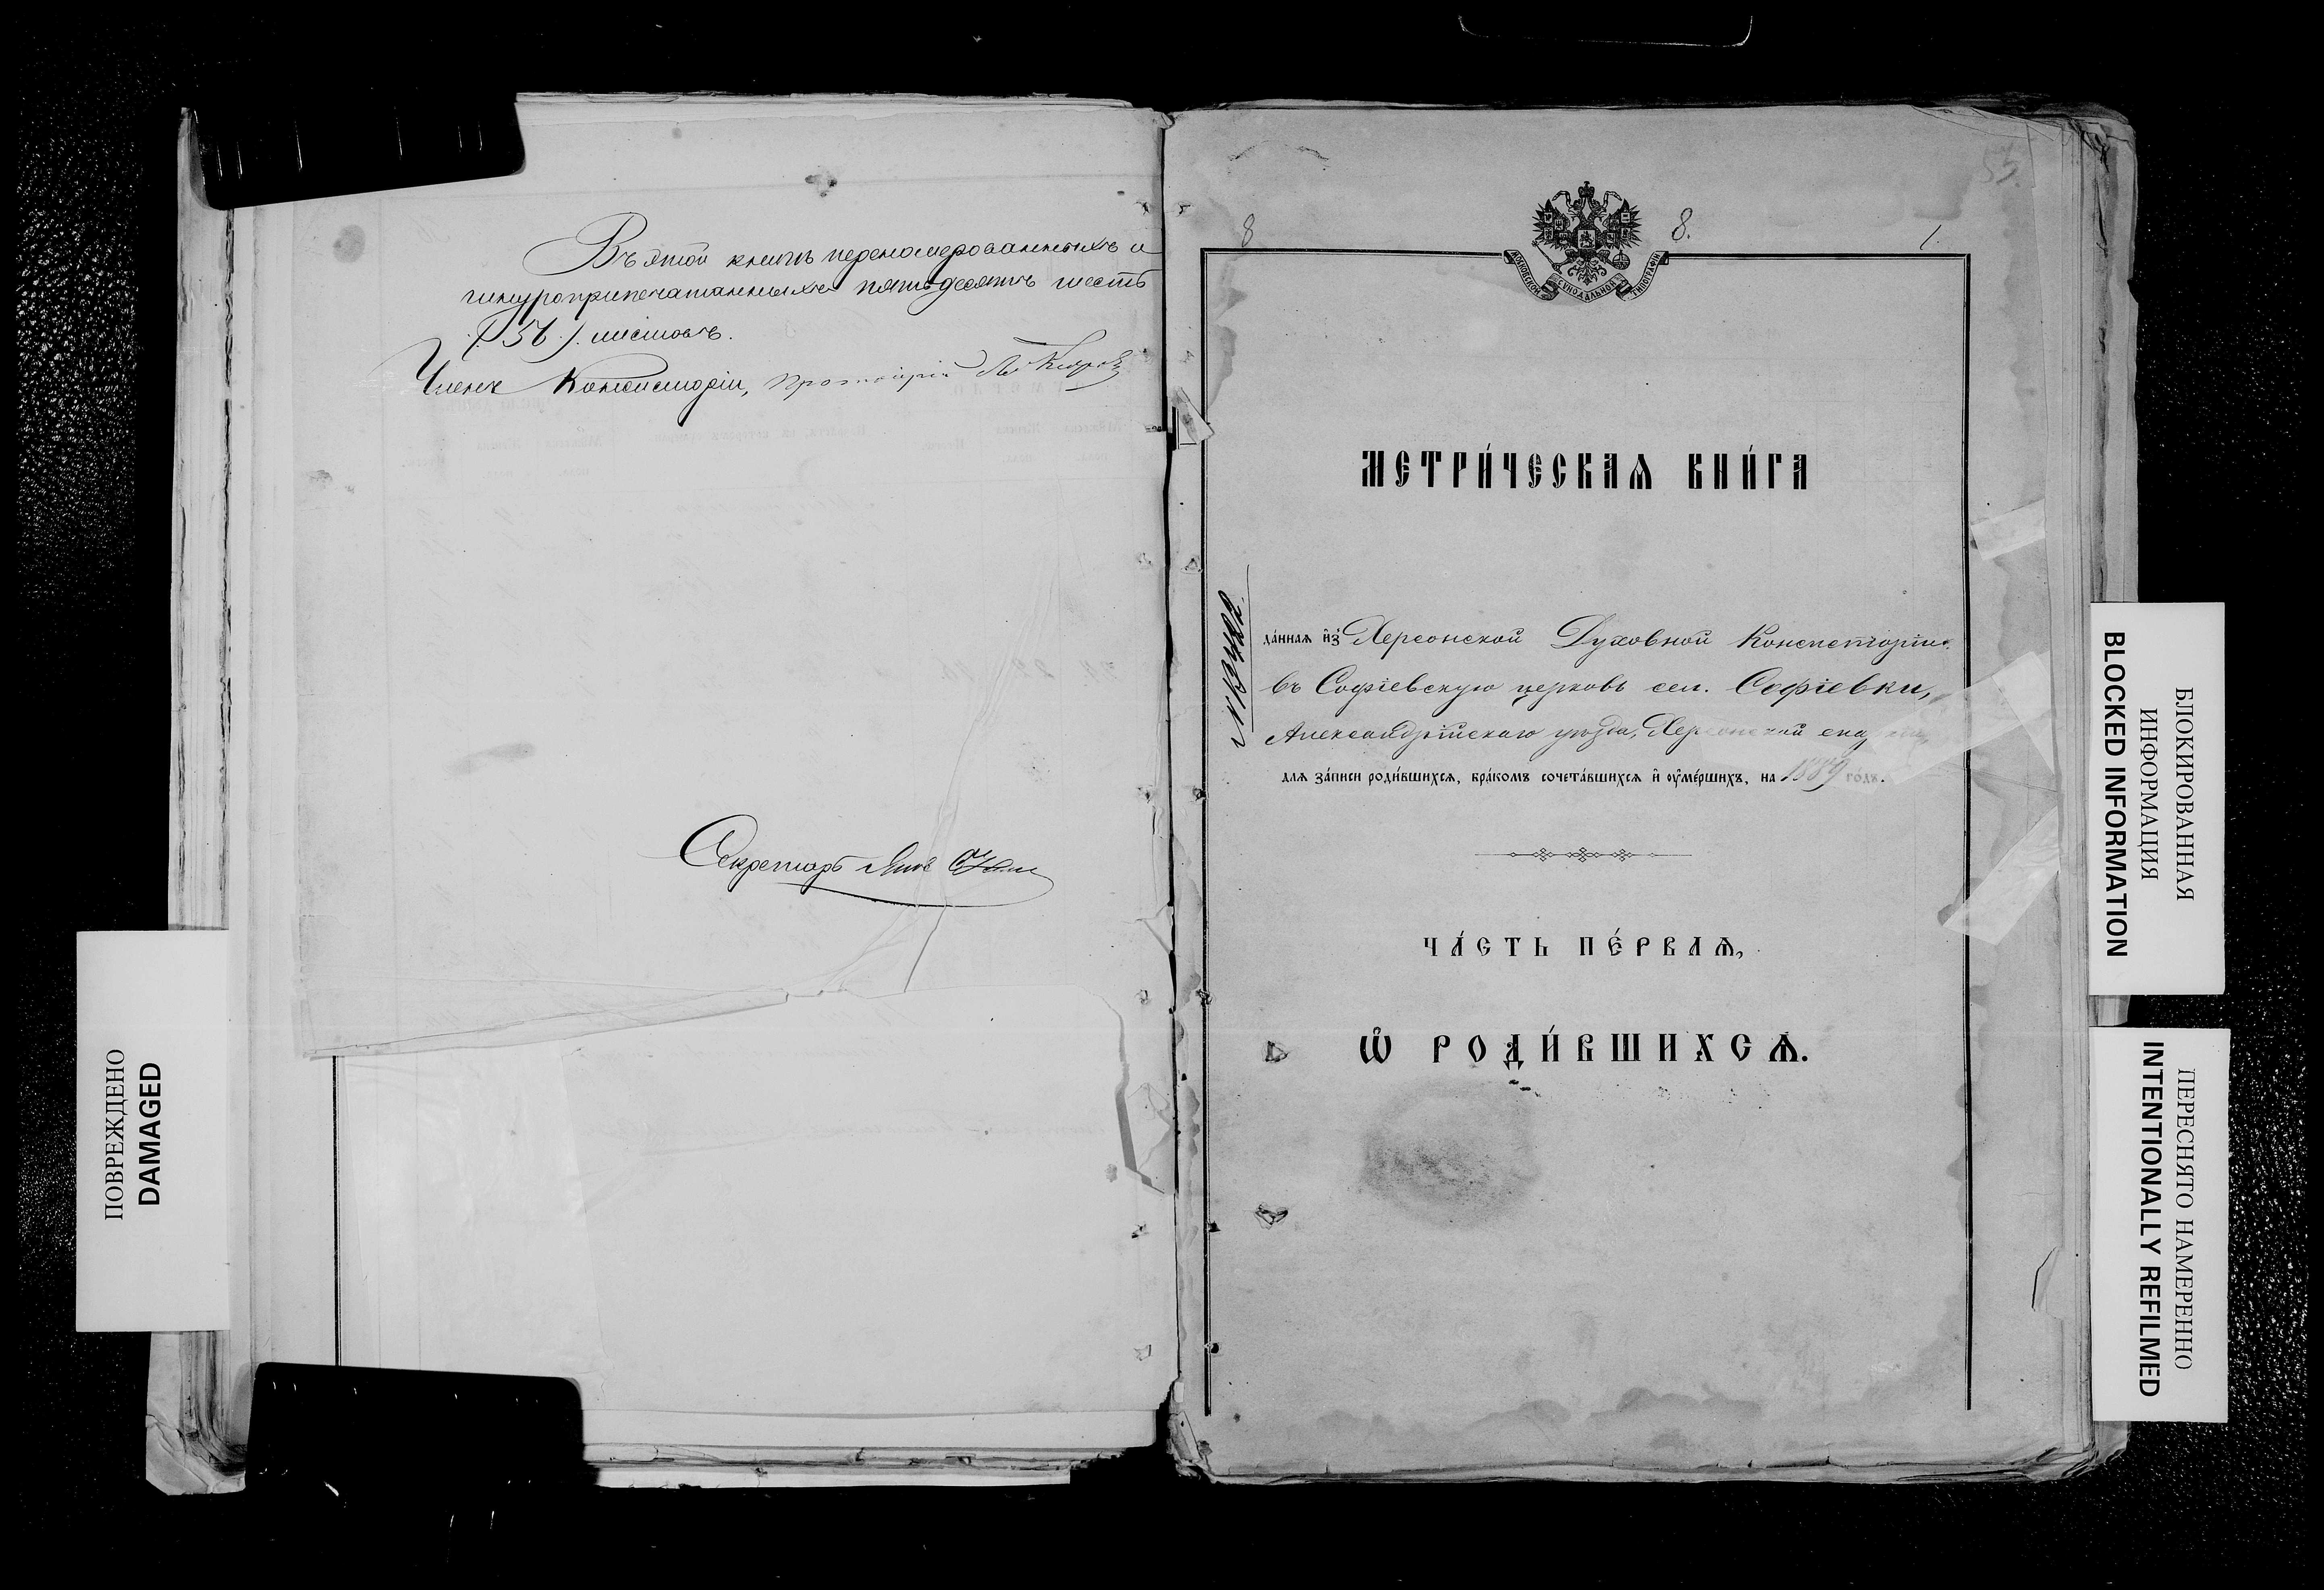 Въ этой книгѣ переномерованныхъ и
шнуроприпечатанныхъ пятьдесятъ шесть
(56) листовъ.
Членъ Консисторіи, протоіерей
Секретарь
8
8.
1.
55
МОСКОВСКОЙ СѴНОДАЛЬНОЙ ТИПОГРАФІИ
МЕТРИ́ЧЕСКАѦ КНИ́ГА
да́ннаѧ и҆з̾ Херсонской Духовной Консисторіи
въ Софіевскую церковь сел. Софіевки,
Александрійскаго уѣзда, Херсонской
длѧ за́писи роди́вшихсѧ, бра́комъ сочета́вшихсѧ и҆ ᲂу҆ме́ршихъ, на 1889 го́дъ.
ЧА́СТЬ ПЕ́РВАѦ,
Ѡ҆ РОДИ́ВШИХСѦ.
ПОВРЕЖДЕНО
DAMAGED
БЛОКИРОВАННАЯ
ИНФОРМАЦИЯ
BLOCKED INFORMATION
ПЕРЕСНЯТО НАМЕРЕННО
INTENTIONALLY REFILMED